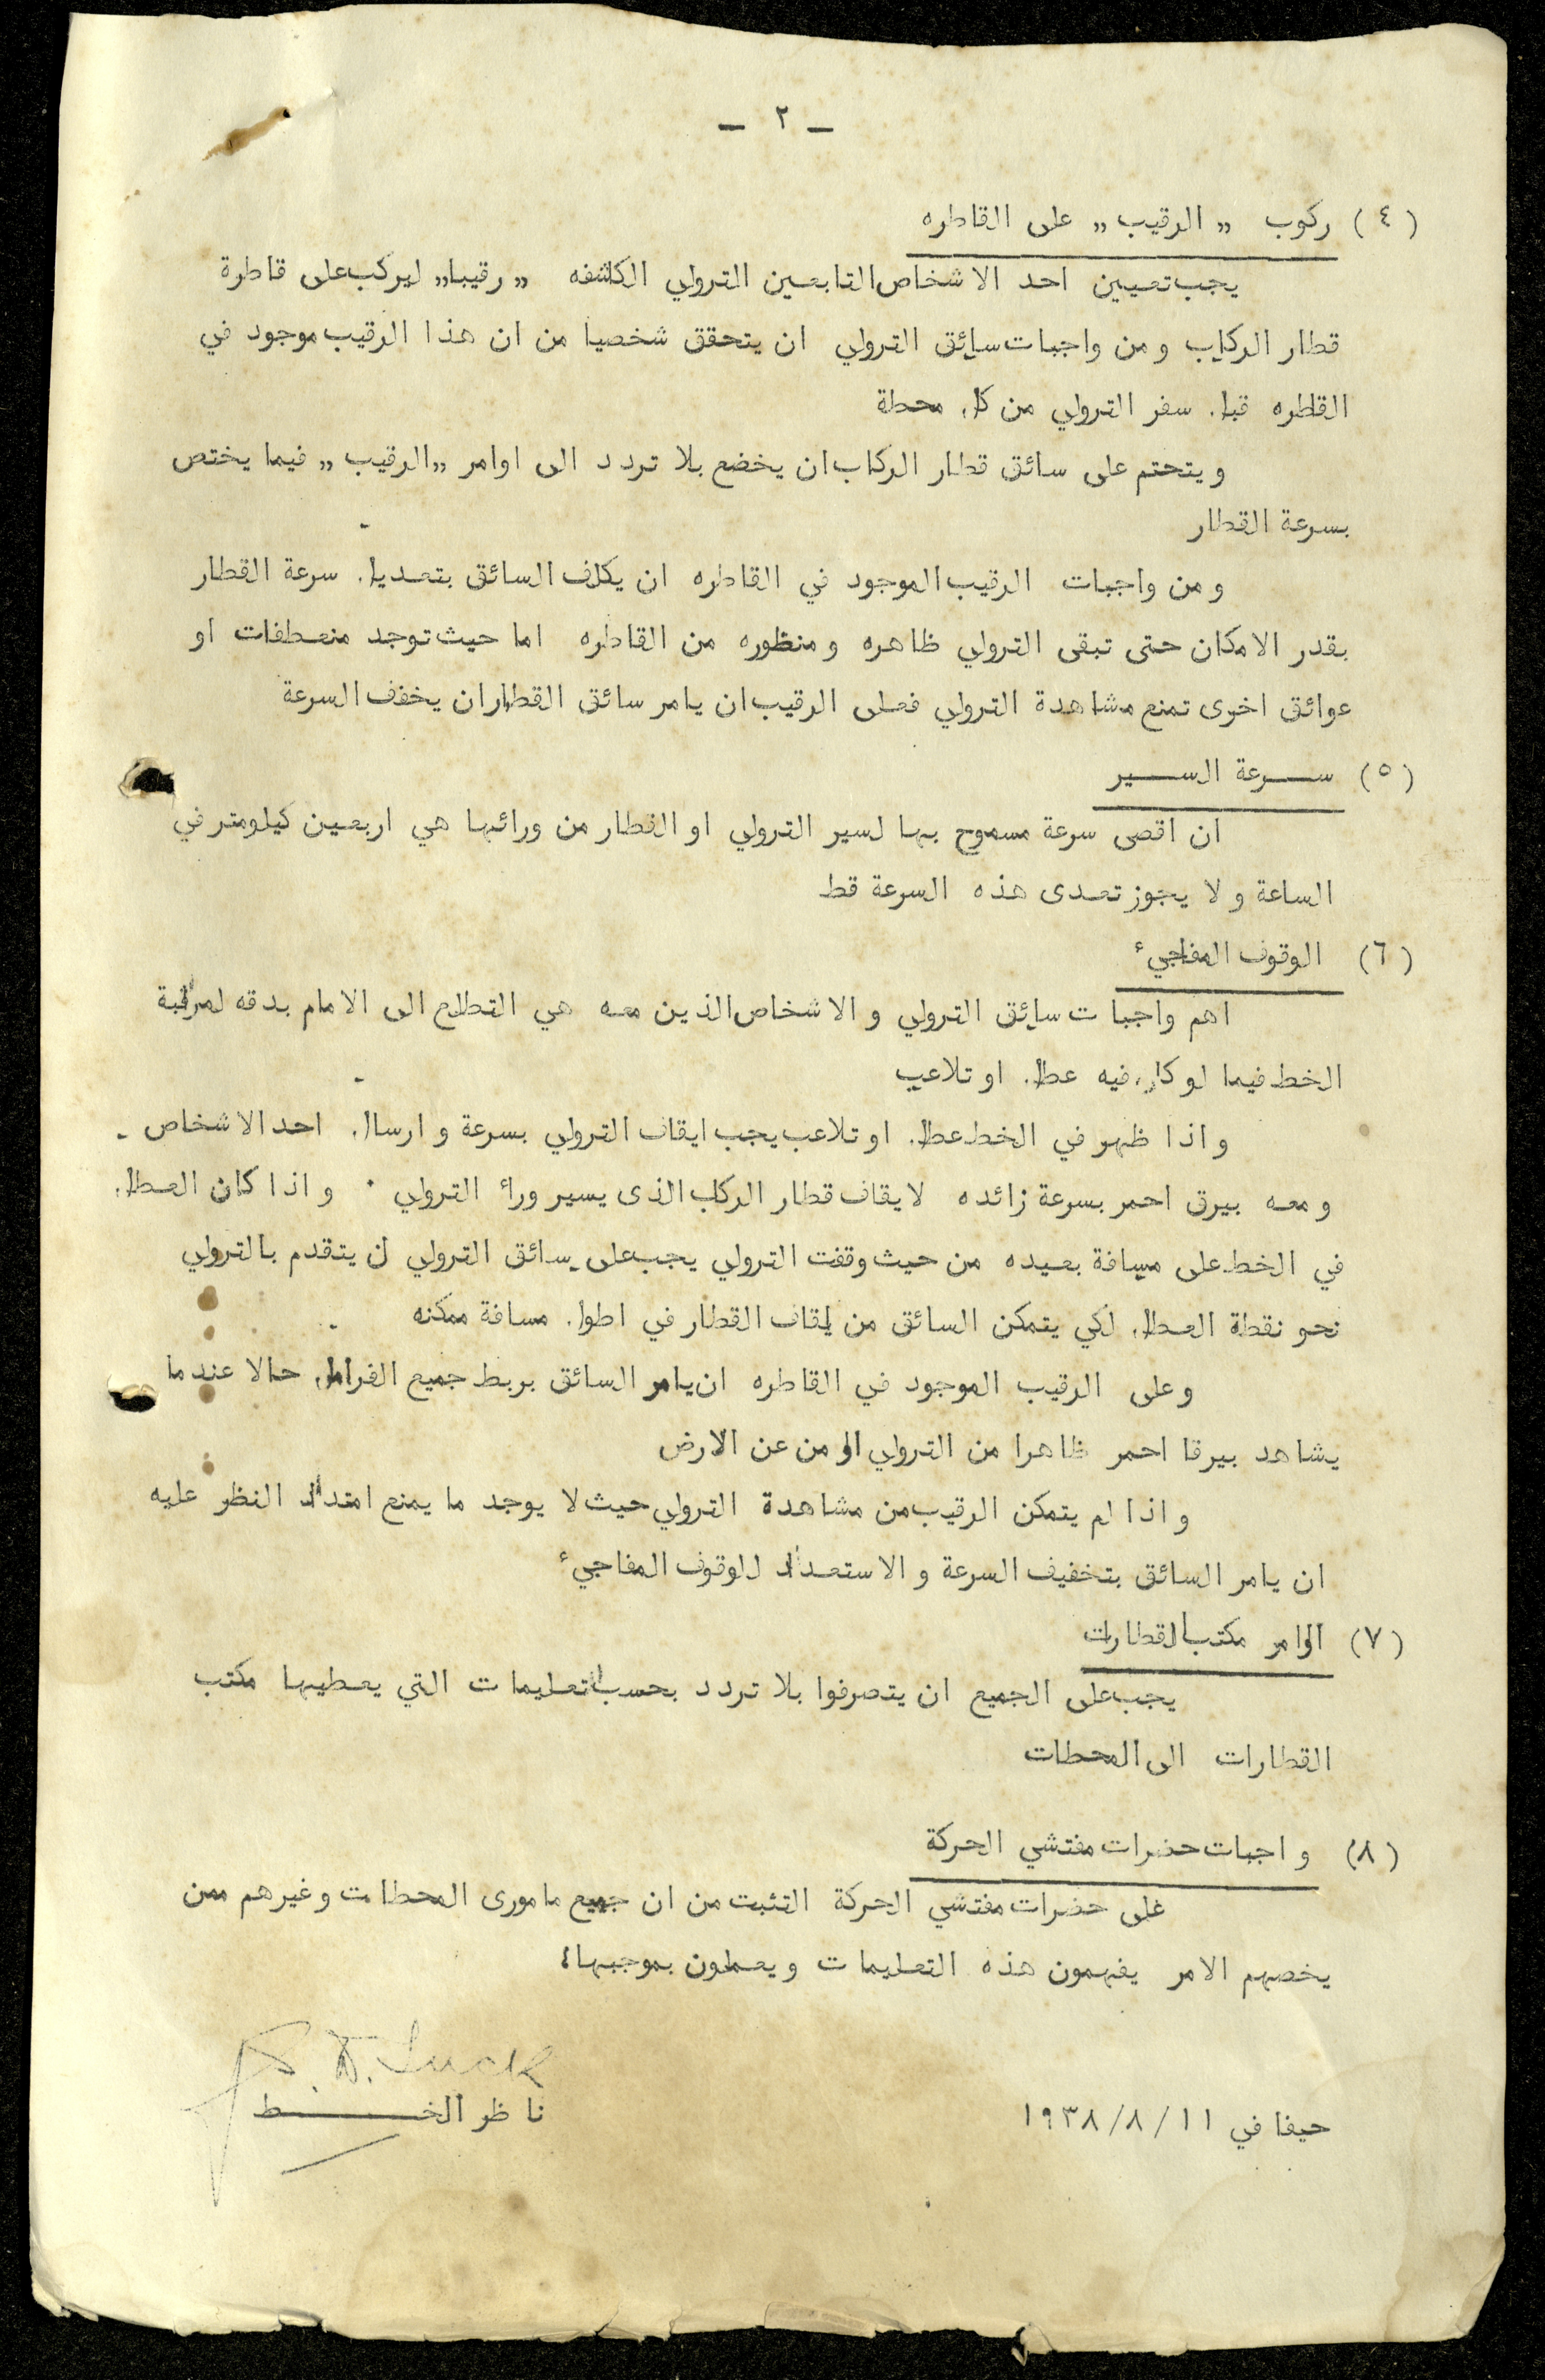 - ٢ -
(٤) ركوب ,,الرقيب,, على القاطره
يجب تعيين احد الاشخاص التابعين الترولي الكاشفه ,,رقيبا,, ليركب على قاطرة
قطار الركاب ومن واجبات سائق الترولي ان يتحقق شخصيا من ان هذا الرقيب موجود في
القاطره قبل سفر الترولي من كل محطة
ويتحتم على سائق قطار الركاب ان يخضع بلا تردد الى اوامر ,,الرقيب,, فيما يختص
بسرعة القطار
ومن واجبات الرقيب الموجود في القاطره ان يكلف السائق بتعديل سرعة القطار
بقدر الامكان حتى تبقى الترولي ظاهره ومنظوره من القاطره اما حيث توجد منعطفات او
عوائق اخرى تمنع مشاهدة الترولي فعلى الرقيب ان يامر سائق القطار ان يخفف السرعة
(٥) سرعة السير
ان اقصى سرعة مسموح بها لسير الترولي او القطار من ورائها هي اربعين كيلومتر في
الساعة ولا يجوز تعدى هذه السرعة قط
(٦) الوقوف المفاجيء
اهم واجبات سائق الترولي والاشخاص الذين معه هي التطلع الى الامام بدقه لمراقبة
الخط فيما لو كان فيه عطل او تلاعب
واذا ظهر في الخط عطل او تلاعب يجب ايقاف الترولي بسرعة وارسال احد الاشخاص -
ومعه بيرق احمر بسرعة زائده لايقاف قطار الركاب الذى يسير وراء الترولي . واذا كان العطل
في الخط على مسافة بعيده من حيث وقفت الترولي يجب على سائق الترولي ان يتقدم بالترولي
نحو نقطة العطل لكي يتمكن السائق من ايقاف القطار في اطول مسافة ممكنه
وعلى الرقيب الموجود في القاطره ان يامر السائق بربط جميع الفرامل حالا عندما
يشاهد بيرقا احمر ظاهرا من الترولي او من عن الارض
واذا لم يتمكن الرقيب من مشاهدة الترولي حيث لا يوجد ما يمنع امتداد النظر عليه
ان يامر السائق بتخفيف السرعة والاستعداد للوقوف المفاجيء
(٧) اوامر مكتب القطارات
يجب على الجميع ان يتصرفوا بلا تردد بحسب التعليمات التي يعطيها مكتب
القطارات الى المحطات
(٨) واجبات حضرات مفتشي الحركة
على حضرات مفتشي الحركة التثبت من ان جميع مامورى المحطات وغيرهم ممن
يخصهم الامر يفهمون هذه التعليمات ويعملون بموجبها،
حيفا في ١١/٨/١٩٣٨
Luck
ناظر الخط